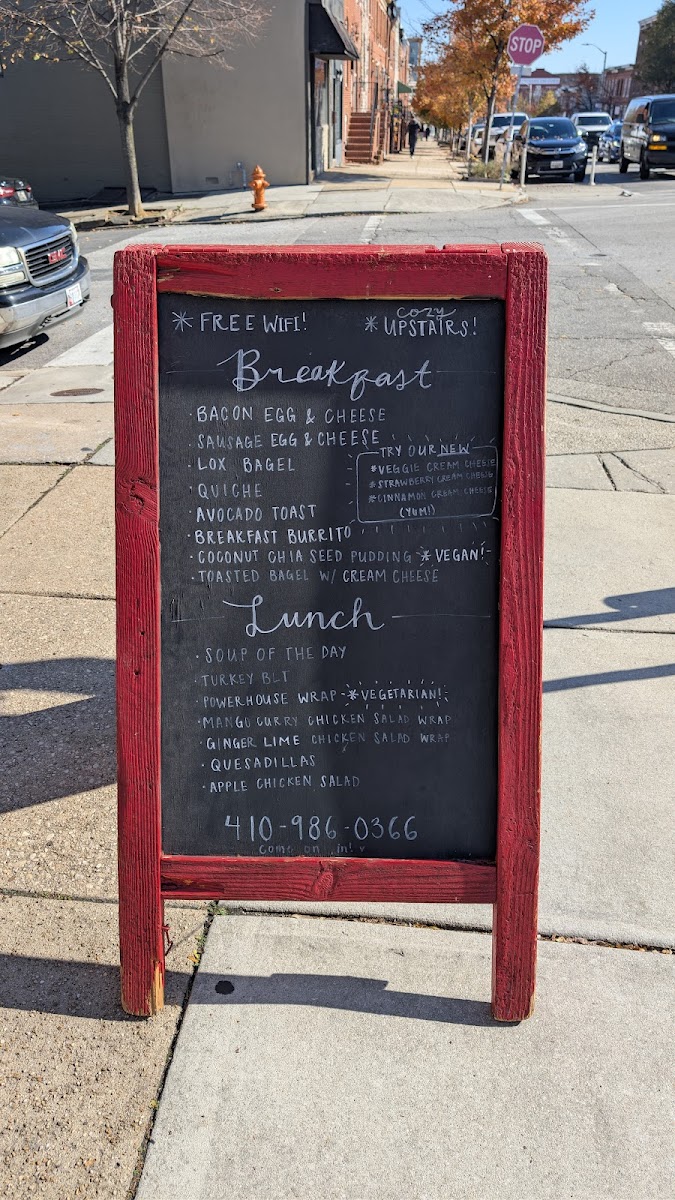 STOP
GMC
* FREE WIFI!
* COZY UPSTAIRS!
Breakfast
· BACON EGG & CHEESE
· SAUSAGE EGG & CHEESE
· LOX BAGEL
· QUICHE
· AVOCADO TOAST
· BREAKFAST BURRITO
· COCONUT CHIA SEED PUDDING * VEGAN!
· TOASTED BAGEL W/ CREAM CHEESE
TRY OUR NEW
* VEGGIE CREAM CHEESE
* STRAWBERRY CREAM CHEESE
* CINNAMON CREAM CHEESE
(YUM!)
Lunch
· SOUP OF THE DAY
· TURKEY BLT
· POWERHOUSE WRAP * VEGETARIAN!
· MANGO CURRY CHICKEN SALAD WRAP
· GINGER LIME CHICKEN SALAD WRAP
· QUESADILLAS
· APPLE CHICKEN SALAD
410-986-0366
come on in!